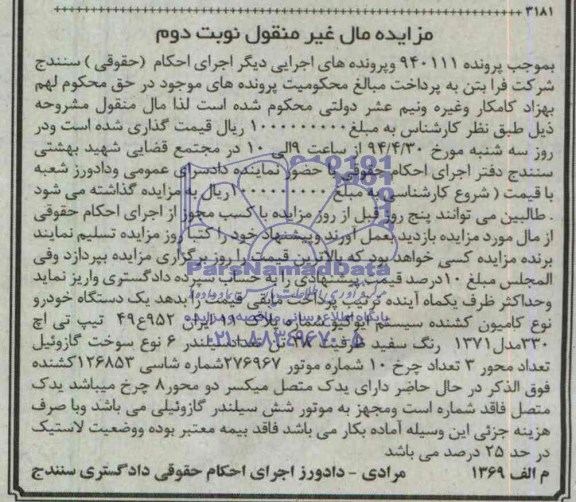 ۳۱۸۱
مزایده مال غیر منقول نوبت دوم
بموجب پرونده ۹۴۰۱۱۱ وپرونده های اجرایی دیگر اجرای احکام (حقوقی) سنندج
شرکت فرا بتن به پرداخت مبالغ محکومیت پرونده های موجود در حق محکوم لهم
بهزاد کامکار وغیره ونیم عشر دولتی محکوم شده است لذا مال منقول مشروحه
ذیل طبق نظر کارشناس به مبلغ ۱۰۰۰۰۰۰۰۰۰ ریال قیمت گذاری شده است ودر
روز سه شنبه مورخ ۹۴/۴/۳۰ از ساعت ۹الی ۱۰ در مجتمع قضایی شهید بهشتی
سنندج دفتر اجرای احکام حقوقی با حضور نماینده دادسرای عمومی ودادورز شعبه
با قیمت ( شروع کارشناسی به مبلغ ریال به مزایده گذاشته می شود
. طالبین می توانند پنج روز قبل از روز مزایده با کسب مجوز از اجرای احکام حقوقی
از مال مورد مزایده بازدید بعمل آورند وپیشنهاد خود را کتبا روز مزایده تسلیم نمایند
برنده مزایده کسی خواهد بود که بالاترین قیمت را روز برگزاری مزایده بپردازد وفی
المجلس مبلغ ۱۰درصد قیمت پیشنهادی را به حساب سپرده دادگستری واریز نماید
وحداکثر ظرف یکماه آینده ترتیب پرداخت مابقی قیمت را بدهد یک دستگاه خودرو
نوع کامیون کشنده سیستم ولوو شماره پلاک ۱۱ ایران ۹۵۲ع۴۹ تیپ تی اچ
۳۳۰مدل۱۳۷۱ رنگ سفید ظرفیت ۳۸ تن تعداد سیلندر ۶ نوع سوخت گازوئیل
تعداد محور ۳ تعداد چرخ ۱۰ شماره موتور ۲۷۶۹۶۷شماره شاسی ۱۲۶۸۵۳کشنده
فوق الذکر در حال حاضر دارای یدک متصل میکسر دو محور۸ چرخ میباشد یدک
متصل فاقد شماره است ومجهز به موتور شش سیلندر گازوئیلی می باشد وبا صرف
هزینه جزئی این وسیله آماده بکار می باشد فاقد بیمه معتبر بوده ووضعیت لاستیک
در حد ۲۵ درصد می باشد
م الف ۱۳۶۹ مرادی - دادورز اجرای احکام حقوقی دادگستری سنندج
ParsNamadData